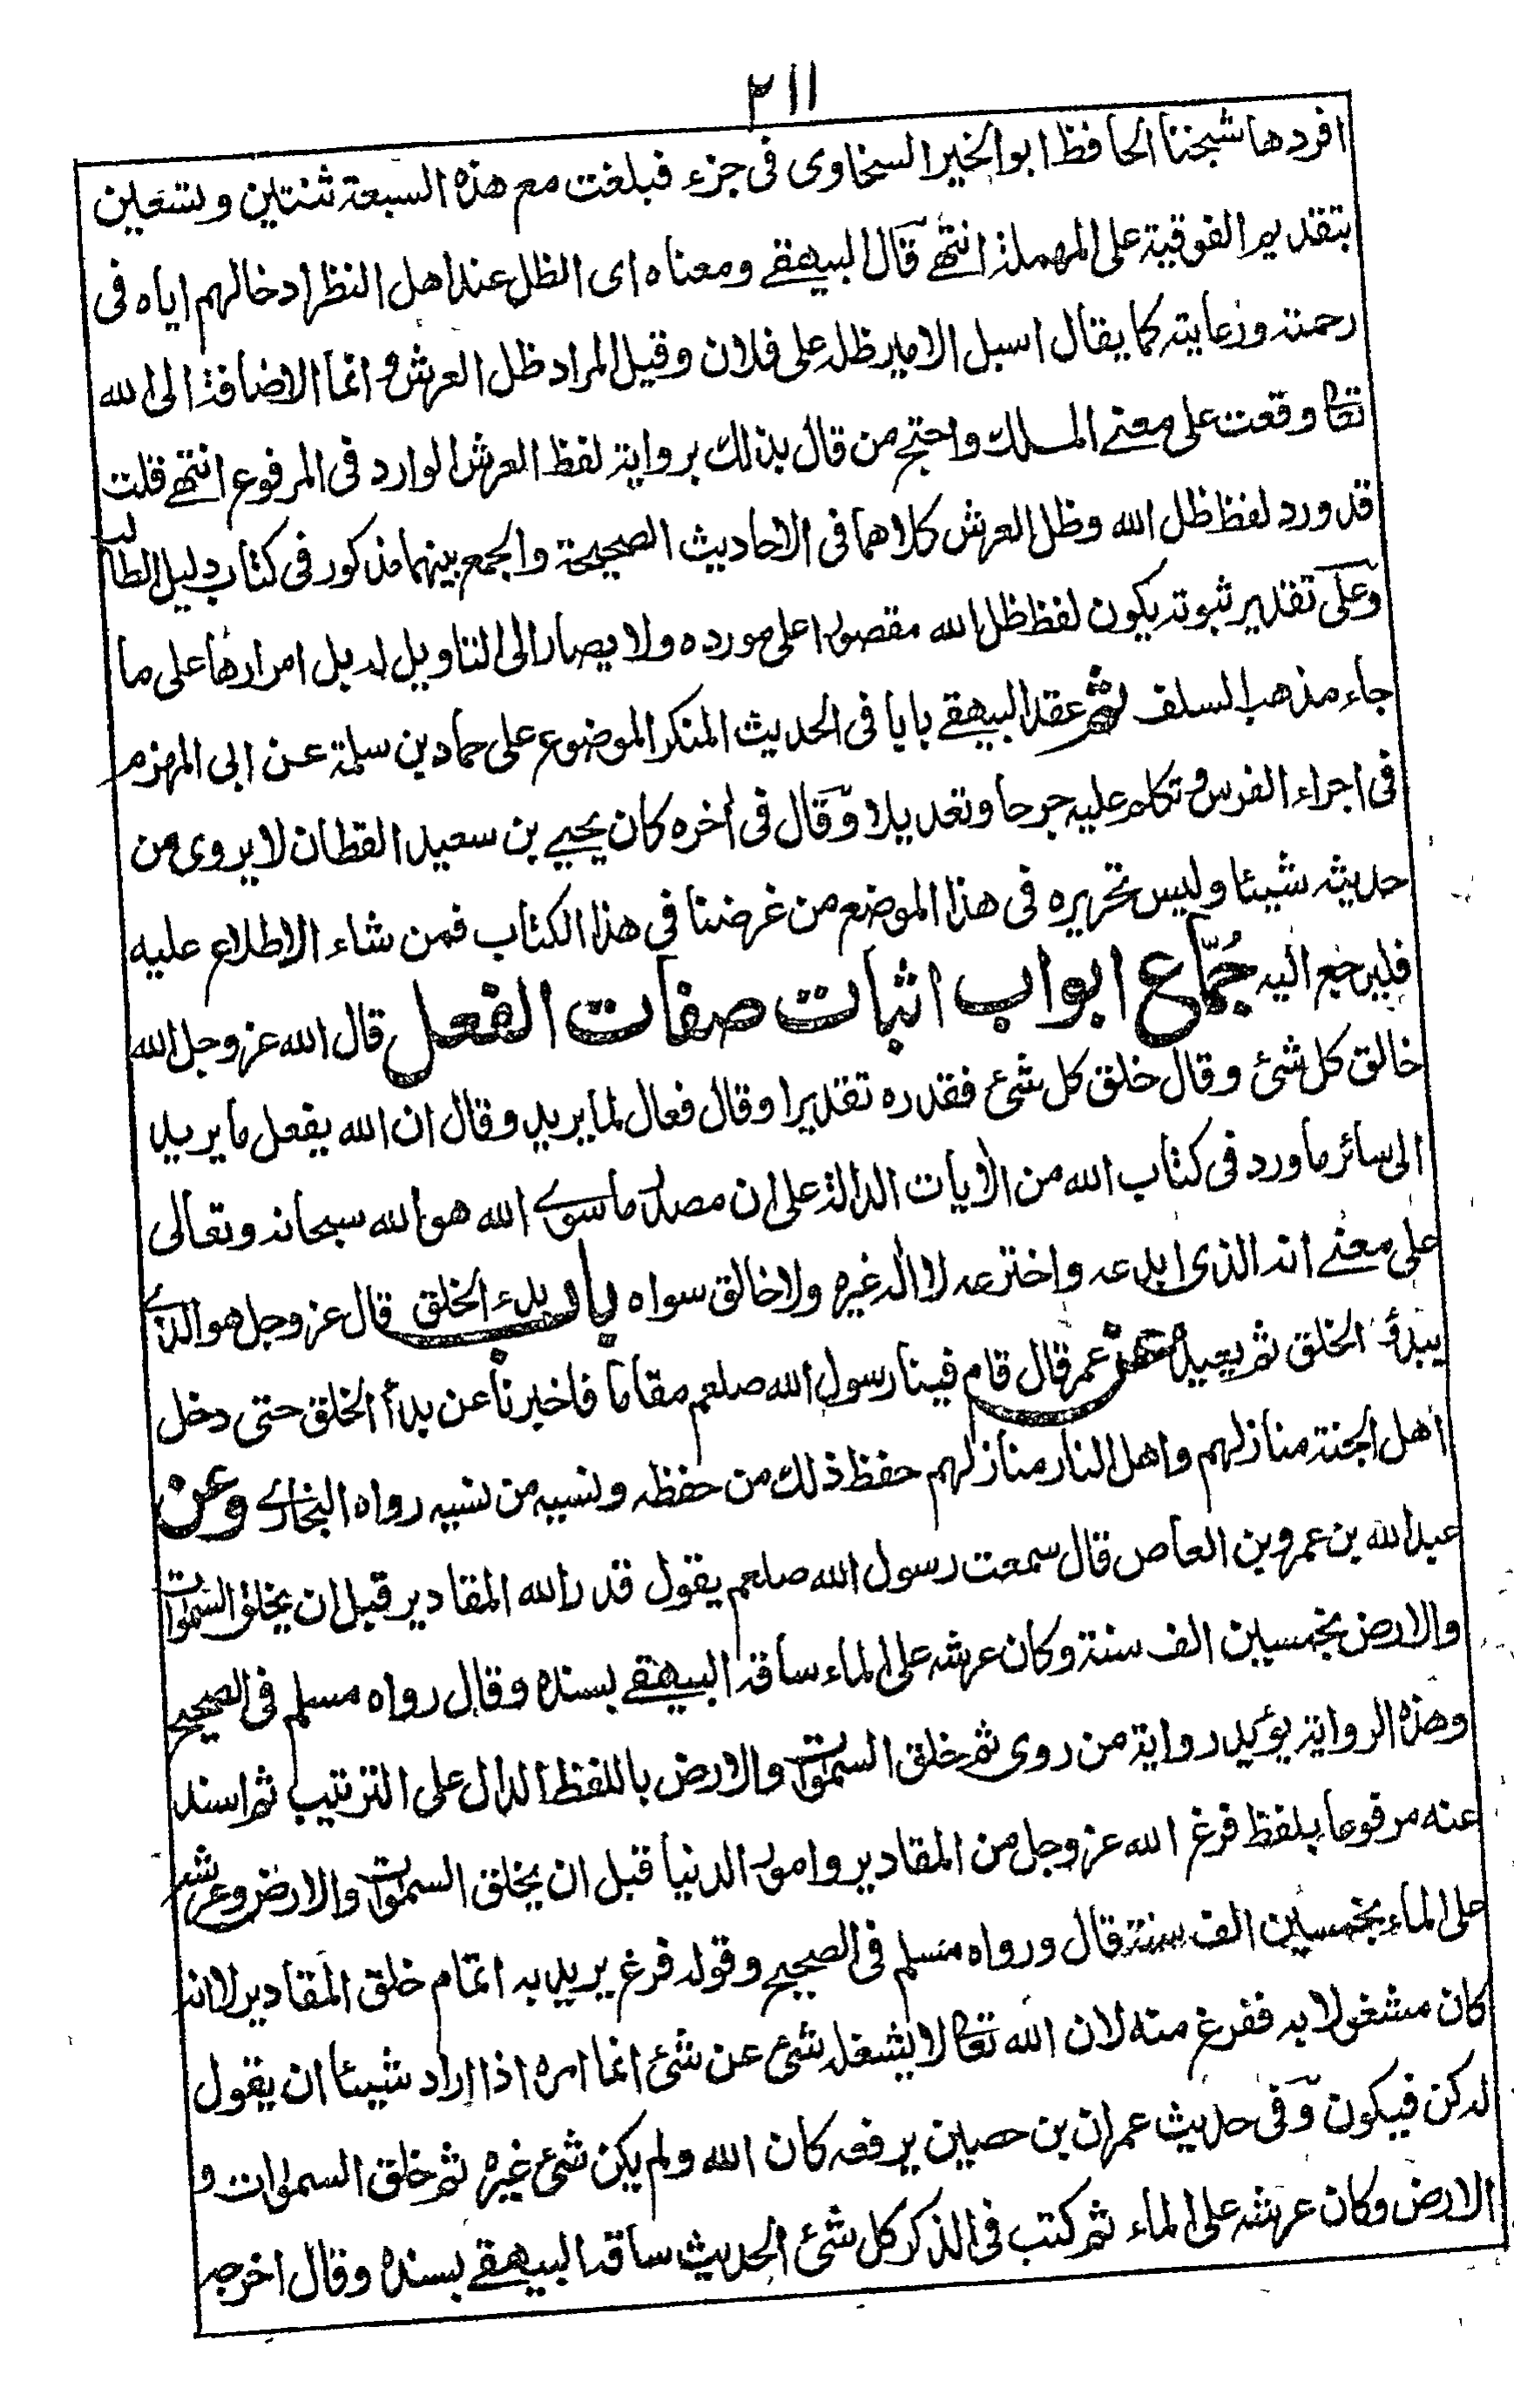 ٢١١
افردها شيخنا الحافظ ابو الخير السخاوى فى جزء فبلغت مع هذه السبعة ثنتين وتسعين
بتقديم الفوقية على المهملة انتهے قال البيهقے ومعناه اى الظل عند اهل النظر ادخالهم اياه فى
رحمته ورعايته كما يقال اسبل الامير ظله على فلان وقيل المراد ظل العرش وانما الاضافة الى الله
تعا وقعت على معنے الملك واحتج من قال بذلك برواية لفظ العرش الوارد فى المرفوع انتهے قلت
قد ورد لفظ ظل الله وظل العرش كلاهما فى الاحاديث الصحيحة والجمع بينهما مذكور فى كتاب دليل الطالب
وعلى تقدير ثبوته يكون لفظ ظل الله مقصورا على مورده ولا يصار الى التاويل له بل امرارها على ما
جاء مذهب السلف ثم عقد البيهقے بابا فى الحديث المنكر الموضوع على حماد بن سلمة عن ابى المهزم
فى اجراء الفرس وتكلم عليه جرحا وتعديلا وقال فى أخره كان يحيے بن سعيد القطان لا يروى من
حديثه شيئا وليس تحريره فى هذا الموضع من غرضنا فى هذا الكتاب فمن شاء الاطلاع عليه
فليرجع اليه جُمّاع ابواب اثبات صفات الفعل قال الله عز وجل الله
خالق كل شئ وقال خلق كل شئ فقدره تقديرا وقال فعال لما يريد وقال ان الله يفعل ما يريد
الى سائر ما ورد فى كتاب الله من الأيات الدالة على ان مصدر ما سوے الله هو الله سبحانه وتعالى
على معنے انه الذى ابدعه واخترعه لا اله غيره ولا خالق سواه باب بدء الخلق قال عز وجل هو الذے
يبدؤ الخلق ثم يعيده عن عمر قال قام فينا رسول الله صلعم مقاما فاخبرنا عن بدأ الخلق حتى دخل
اهل الجنة منازلهم واهل النار منازلهم حفظ ذلك من حفظه ونسيه من نسيه رواه البخارے وعن
عبد الله بن عمرو بن العاص قال سمعت رسول الله صلعم يقول قدر الله المقادير قبل ان يخلق السموات
والارض بخمسين الف سنة وكان عرشه على الماء ساقه البيهقے بسنده وقال رواه مسلم فى الصحيح
وهذه الرواية يؤيد رواية من روى ثم خلق السموات والارض باللفظ الدال على الترتيب ثم اسند
عنه مرفوعا بلفظ فرغ الله عز وجل من المقادير وامور الدنيا قبل ان يخلق السموات والارض وعرشه
على الماء بخمسين الف سنة قال ورواه مسلم فى الصحيح وقوله فرغ يريد به اتمام خلق المقادير لا انه
كان مشغولا به ففرغ منه لان الله تعا لا يشغله شئ عن شئ انما امره اذا اراد شيئا ان يقول
له كن فيكون وفى حديث عمران بن حصين يرفعه كان الله ولم يكن شئ غيره ثم خلق السموات و
الارض وكان عرشه على الماء ثم كتب فى الذكر كل شئ الحديث ساقه البيهقے بسنده وقال اخرجه